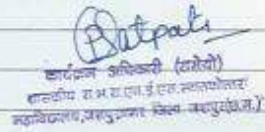 Bsatpati
कार्यक्रम अधिकारी (रासेयो)
शासकीय रा.भ.रा.एन.ई.एस.स्नातकोत्तर
महाविद्यालय,जशपुरनगर जिला जशपुर(छ.ग.)